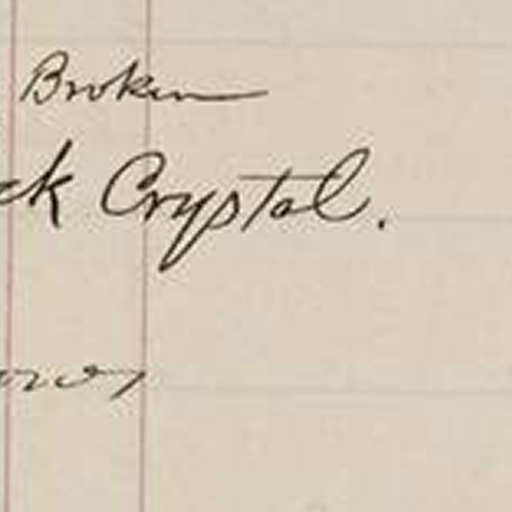 Broken
ck Crystal.